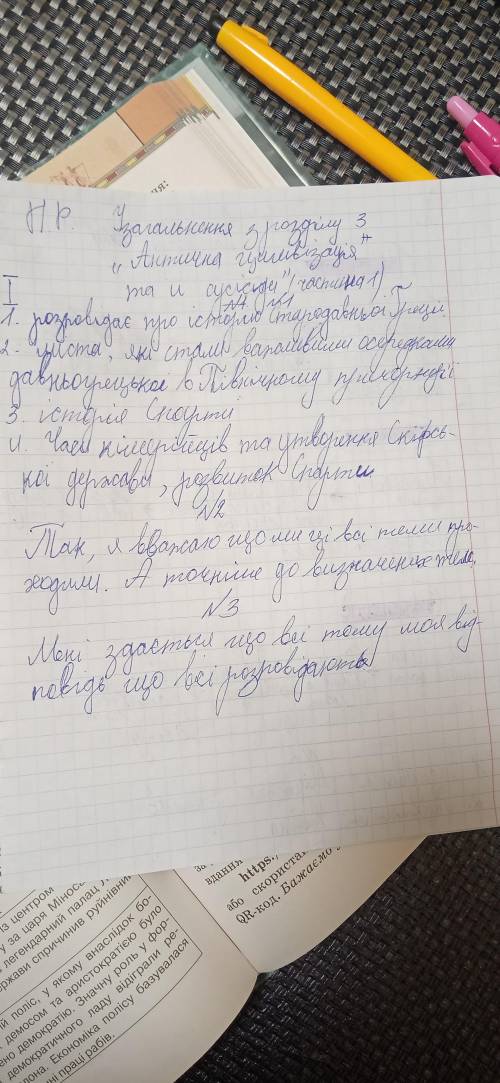 Н.Р. Узагальнення з розділу 3
"Антична цивілізація"
та її сусіди" (частина 1)
I
№1 №1
1. розповідає про історію Стародавньої Греції
2. міста, які стали важливими осередками
давньогрецької в Північному причорномор'ї
3. історія Спарти
4. Часи кімерійців та утворення Скіфсь-
кої держави, розвиток Спарти
№2
Так, я вважаю що ми ці всі теми про-
ходили. А точніше до визначених тем.
№3
Мені здається що всі тому моя від-
повідь що всі розповідають
ня:
із центром
у за царя Міноса
легендарний палац
ержави спричинив руйнівний
ій поліс, у якому внаслідок бо-
демосом та аристократією було
ено демократію. Значну роль у фор-
демократичного ладу відіграли ре-
лона. Економіка полісу базувалася
ні праці рабів.
вдання
https:
або скористай
QR-код. Бажаємо